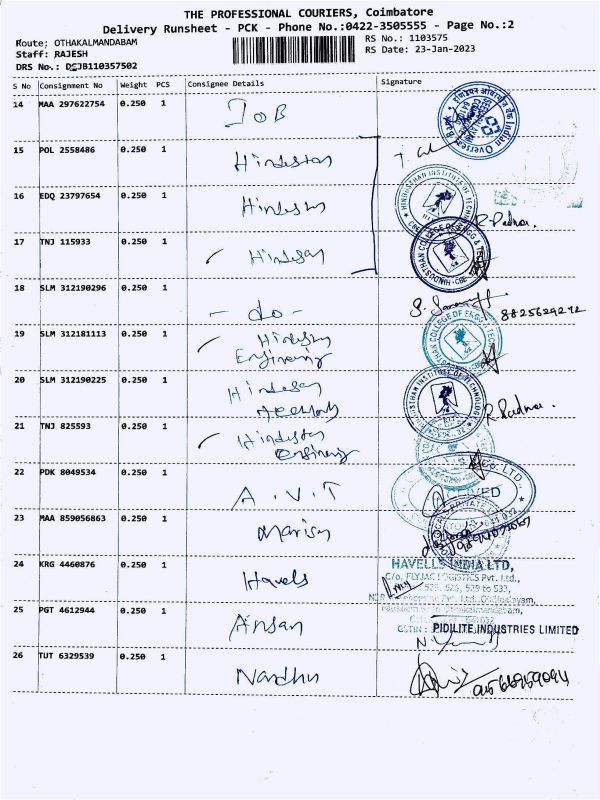 THE PROFESSIONAL COURIERS, Coimbatore
Delivery Runsheet - PCK - Phone No.:0422-3505555 - Page No.:2
Route; OTHAKALMANDABAM
RS No.: 1103575
Staff: RAJESH
RS Date: 23-Jan-2023
DRS No.: DSJB110357502
S No Consignment No Weight PCS Consignee Details Signature
14 MAA 297622754 0.250 1 IOB
15 POL 2558486 0.250 1 Hindustan
16 EDQ 23797654 0.250 1 Hindustan
R. Padma
17 TNJ 115933 0.250 1 Hindustan
18 SLM 312190296 0.250 1 - do -
8825629212
19 SLM 312181113 0.250 1 Hindustan
Engineering
20 SLM 312190225 0.250 1 Hindustan
21 TNJ 825593 0.250 1 Hindustan
Engineering
22 PDK 8049534 0.250 1 A.V.T
23 MAA 859056863 0.250 1
24 KRG 4460876 0.250 1 Havels
HAVELLS INDIA LTD,
C/o. FLYJAC LOGISTICS Pvt. Ltd.,
25 PGT 4612944 0.250 1
GSTIN : PIDILITE INDUSTRIES LIMITED
26 TUT 6329539 0.250 1 Nandhu